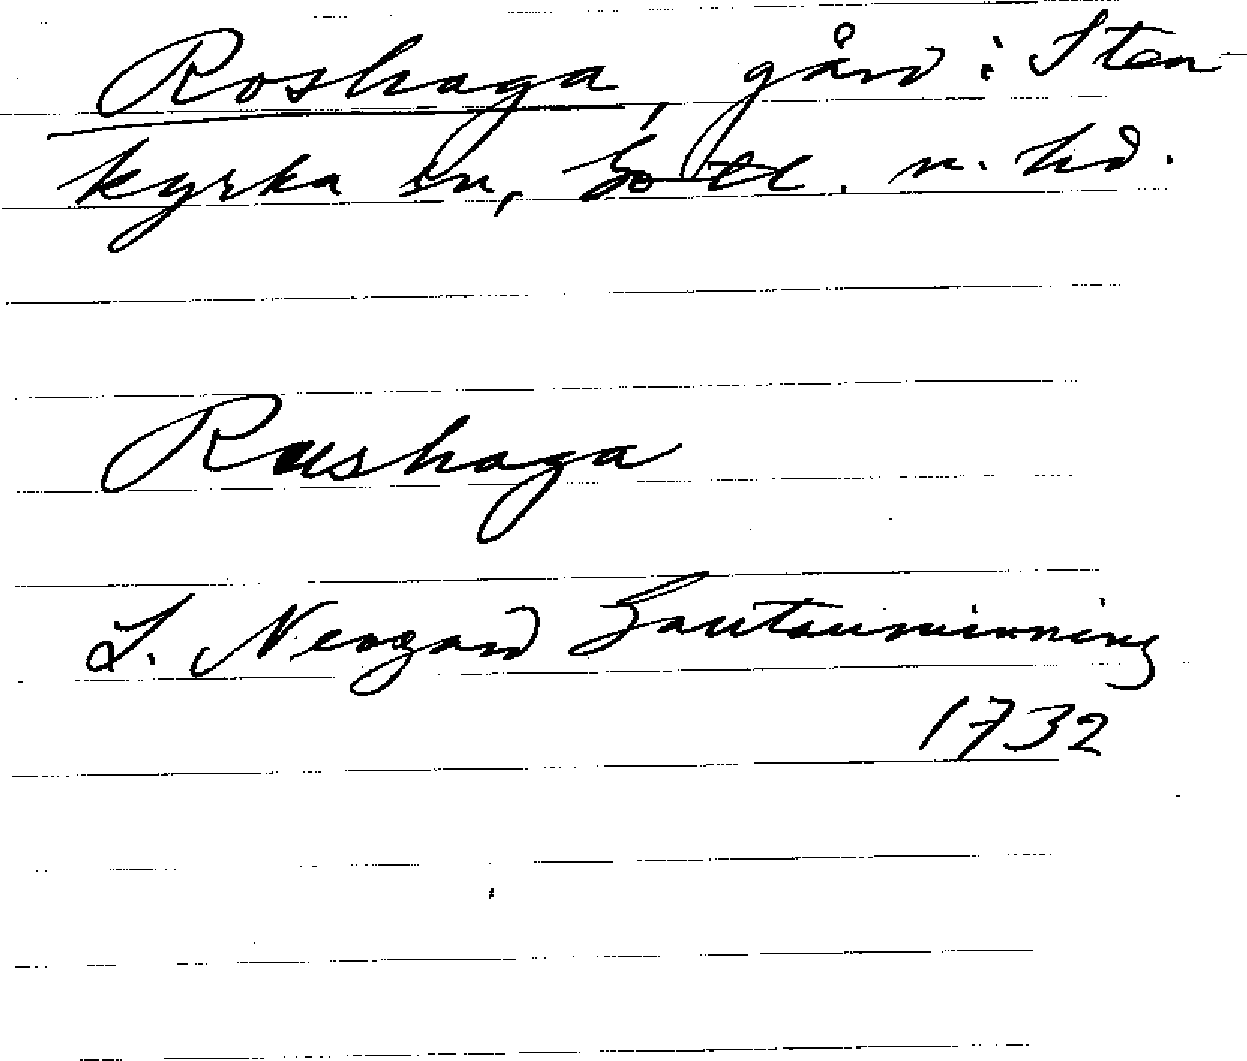 Roshaga, gård i Sten
kyrka sn, Gotl. n. hd.
Rushaga
L. Neogard Gautauminning
1732